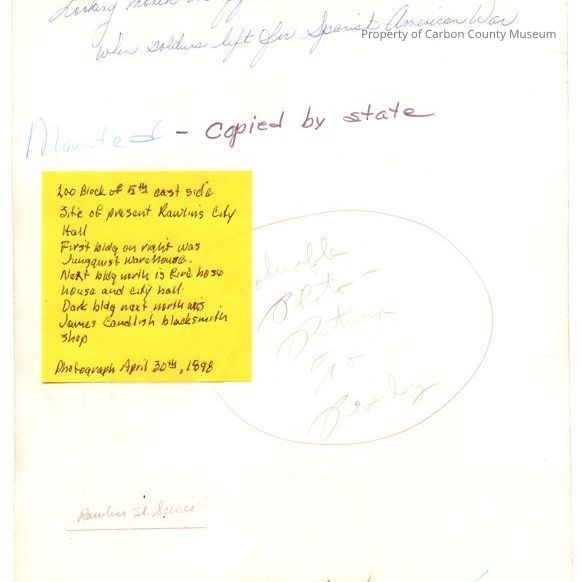 Looking North on
when soldiers left for Spanish American War
Property of Carbon County Museum
Mounted - Copied by state
200 Block of 5th east side
Site of present Rawlins City
Hall
First bldg on right was
Jungquist Warehouse.
Next bldg north is Fire hose
house and city hall
Dark bldg next north was
James Candlish blacksmith
shop
Photograph April 30th, 1898
Valuable
Photo -
Return
To
Beverley
Rawlins St. Scenes